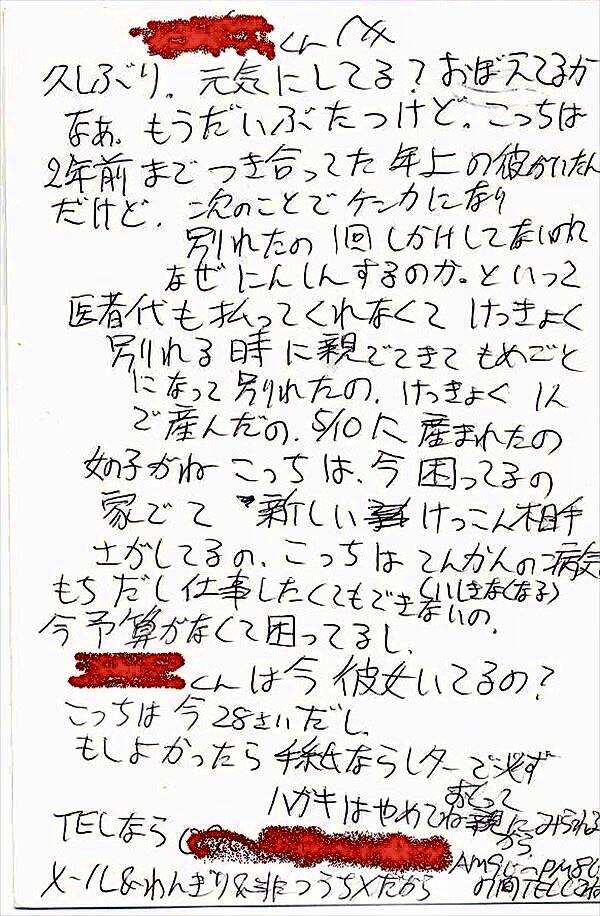 くんへ
久しぶり。元気にしてる?おぼえてるか
なぁ。もうだいぶたつけど。こっちは
2年前までつき合ってた年上の彼がいたん
だけど。次のことでケンカになり
別れたの 1回しかけしてないのに
なぜにんしんするのか。といって
医者代も払ってくれなくてけっきょく
別れる時に親でてきてもめごと
になって別れたの。けっきょく1人
で産んだの。5/10に産まれたの
女の子がね こっちは、今困ってるの
家でて 新しい けっこん相手
さがしてるの。こっちはてんかんの病気
もちだし仕事したくてもできないの。
(いしきなくなる)
今予算がなくて困ってるし、
くんは今彼女いてるの?
こっちは今28さいだし、
もしよかったら手紙ならレターで必ず
おくって
ハガキはやめてね親にみられる
から
TELなら
AM9じ〜PM8じ
メール&わんぎり&非つうち×だから
の間TELしてね